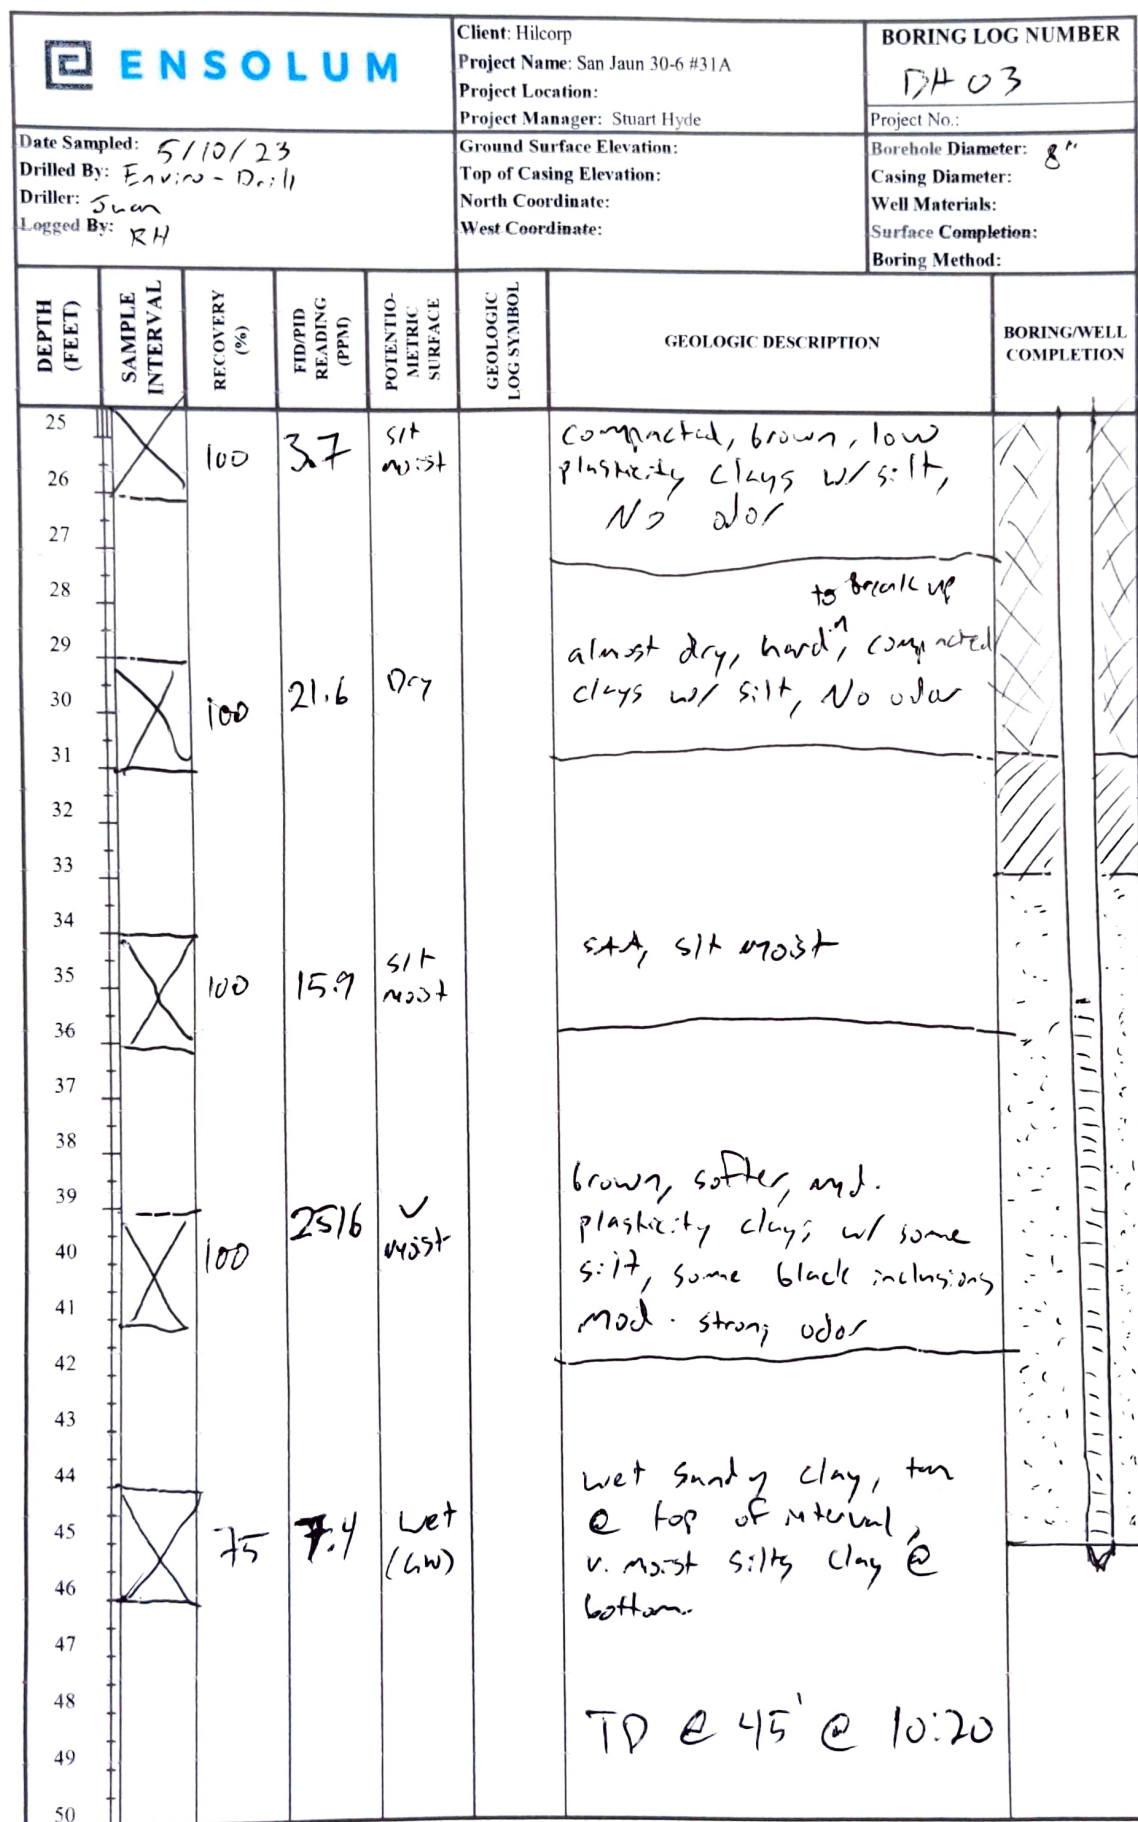 ENSOLUM
Client: Hilcorp
Project Name: San Jaun 30-6 #31A
Project Location:
Project Manager: Stuart Hyde
BORING LOG NUMBER
DH 03
Project No.:
Date Sampled: 5/10/23
Drilled By: Enviro-Drill
Driller: Juan
Logged By: RH
Ground Surface Elevation:
Top of Casing Elevation:
North Coordinate:
West Coordinate:
Borehole Diameter: 8"
Casing Diameter:
Well Materials:
Surface Completion:
Boring Method:
DEPTH
(FEET)
SAMPLE
INTERVAL
RECOVERY
(%)
FID/PID
READING
(PPM)
POTENTIO-
METRIC
SURFACE
GEOLOGIC
LOG SYMBOL
GEOLOGIC DESCRIPTION
BORING/WELL
COMPLETION
25
26
100
3.7
slt
moist
compacted, brown, low
plasticity clays w/ silt,
No odor
27
28
29
30
100
21.6
Dry
to break up
almost dry, hard ^, compacted
clays w/ silt, No odor
31
32
33
34
35
100
15.9
slt
moist
SAA, slt moist
36
37
38
39
40
100
2516
v
moist
brown, softer, md.
plasticity clays w/ some
silt, some black inclusions
mod. strong odor
41
42
43
44
45
75
7.4
wet
(GW)
wet sandy clay, tan
@ top of interval,
v. moist silty clay @
bottom.
46
47
48
TD @ 45' @ 10:20
49
50